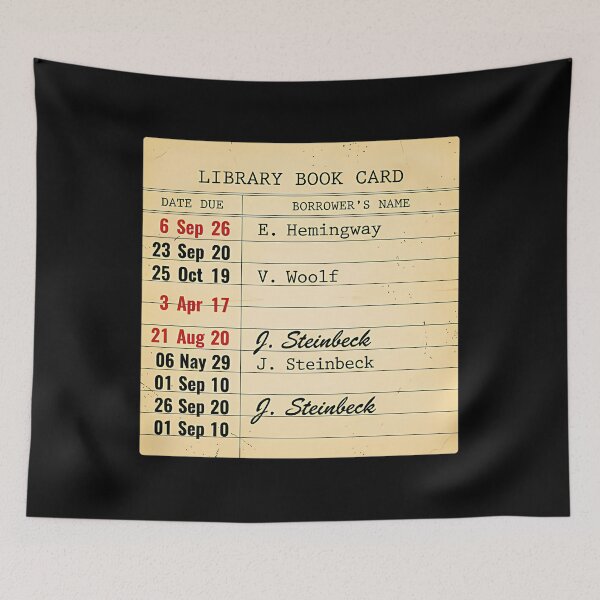 LIBRARY BOOK CARD
DATE DUE BORROWER'S NAME
6 Sep 26 E. Hemingway
23 Sep 20
25 Oct 19 V. Woolf
3 Apr 17
21 Aug 20 J. Steinbeck
06 Nay 29 J. Steinbeck
01 Sep 10
26 Sep 20 J. Steinbeck
01 Sep 10